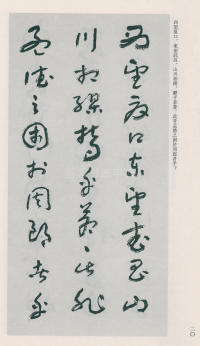 西望夏口，東望武昌，山川相繆，鬱乎蒼蒼，此非孟德之困於周郎者乎？
西望夏口東望武昌山
川相繆鬱乎蒼〻此非
孟德之困於周郎者乎
二〇